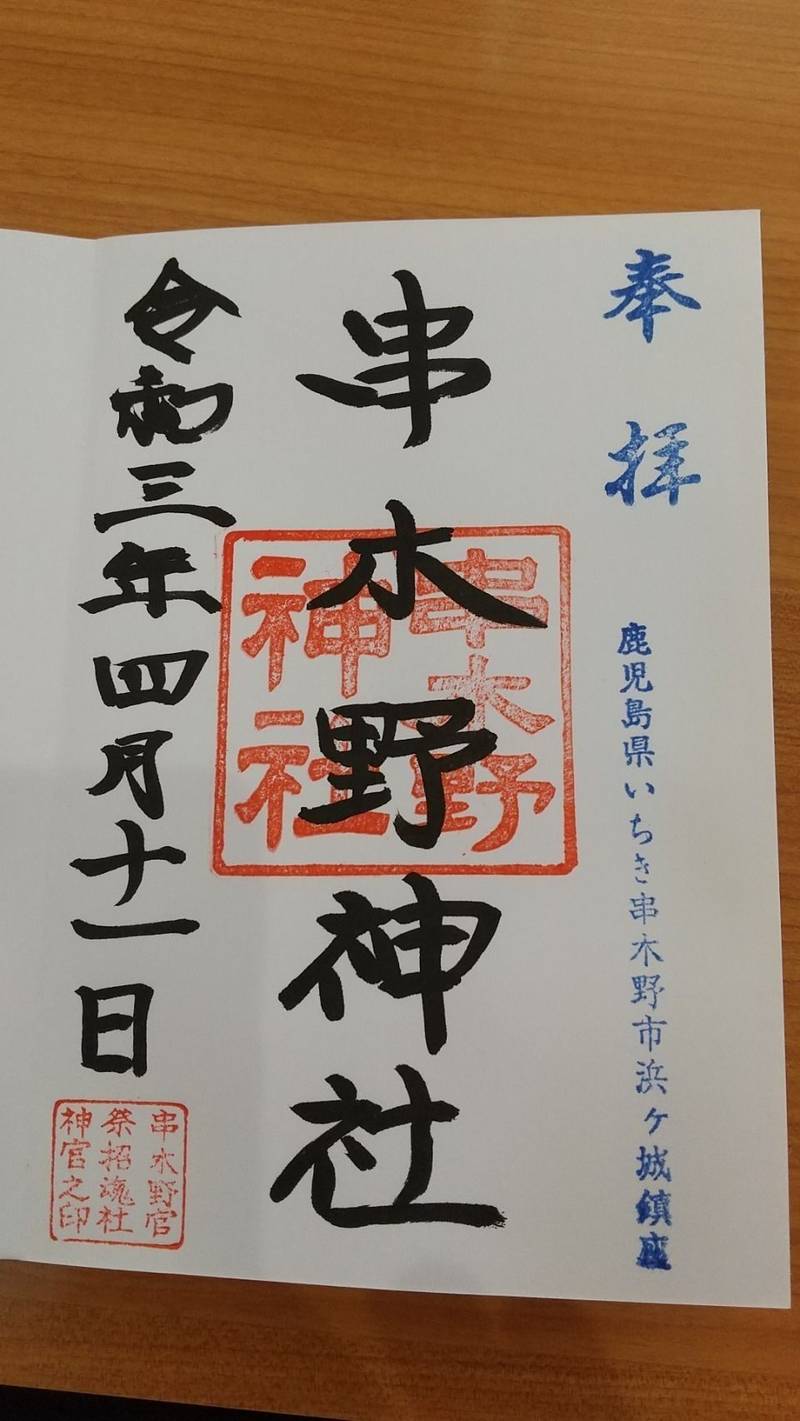 奉拝
鹿児島県いちき串木野市浜ヶ城鎮座
串木野神社
串木野
神社
令和三年四月十一日
串木野官
祭招魂社
神官之印